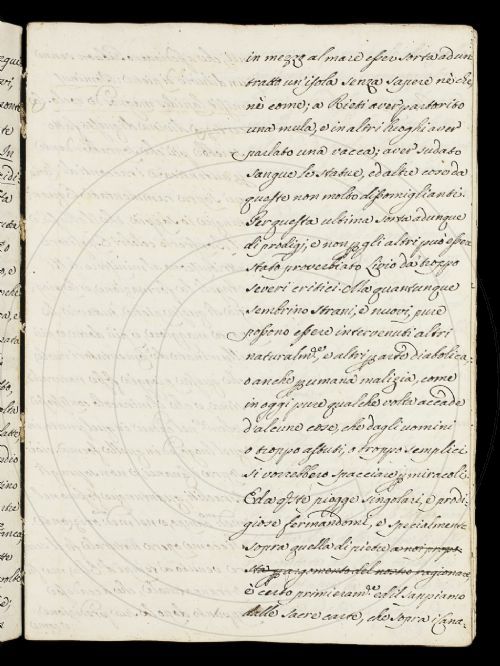 in mezzo al mare esser sorta ad un
tratto un'isola senza sapere nè che,
nè come; a Rieti aver partorito
una mula, e in altri luoghi aver
parlato una vacca; aver sudato
sangue le statue, ed altre cose da
queste non molto dissomiglianti.
Per questa ultima sorta adunque
di prodigi, e non p gli altri può essere
stato proverbiato Livio da troppo
severi critici. Ma quantunque
sembrino strani, e nuovi, pure
possono essere intervenuti altri
naturalm.e, e altri p arte diabolica,
o anche p umana malizia, come
in oggi pure qualche volta accade
d'alcune cose, che dagli uomini
o troppo astuti, o troppo semplici
si vorrebbero spacciare p miracoli.
Ed a q.ste piogge singolari, e prodi-
giose fermandomi, e specialmente
sopra quella di pietre a noi propo-
sta p argomento del nostro ragionare
è certo primieram.e ed il sappiamo
dalle sacre carte, che sopra i Cana-